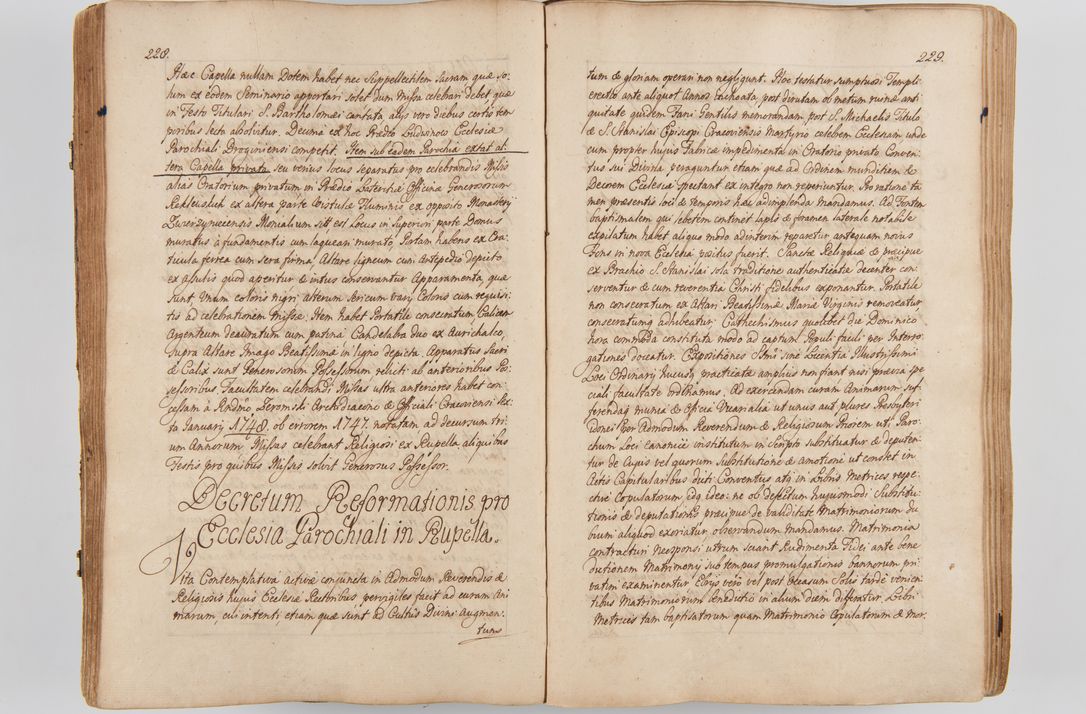 228.
Hæc Capella nullam Dotem habet nec Suppellectilem Sacram quæ so-
lum ex eodem Seminario apportari solet dum Missa celebrari debet quæ
in Festo Titulari S. Bartholomæi cantata, alijs vero diebus certis tem
poribus lecta absolvitur. Decima ex hoc Prædio Ludwinow Ecclesiæ
Parochiali competit. Item sub eadem Parochia extat al-
tera Capella privata seu verius locus separatus pro celebrandis Missis
alias Oratorium privatum in Prædio Officinæ Generosorum
ex altera parte Vistulæ Fluminis ex opposito Monasterij
Zwierzynecensis Monialium sitt est Locus in superiori parte Domus
muratus à fundamentis cum laqueari murato Portam habens ex Cra-
ticula ferrea cum sera firma Altare ligneum cum Antepedio depicto
ex asulis quod aperitur & intus conservantur Apparamenta, quæ
sunt Unum coloris nigri alterum sericum varij Coloris cum requisi-
tis ad celebrationem missæ. Item habet Portatile consecratum Calicem
Argenteum deauratum cum patina Candelabra duo ex Aurichalco
supra Altare Imago Beatissimæ in ligno depicta Apparatus sacri
& Calix sunt Generosorum Possessorum relicti ab anterioribus Pos-
sessoribus. Facultatem celebrandi Missas ultra anteriores habet con-
cessam à Rndmo Jeromski Archidiacono & Officiali Cracoviensi sex-
ta January 1748. ob errorem 1747. notatam ad decursum tri-
um Annorum Missas celebrant Religiosi ex Rupella aliquibus
Festis pro quibus Missas solvit Generosus Possessor.
Decretum Reformationis pro
Ecclesia Parochiali in Rupella.
Vita Contemplativa activæ conjuncta in Admodum Reverendis &
Religiosis hujus Ecclesiæ Rectoribus pervigiles facit ad curam Ani
marum, cui intenti etiam quæ sunt ad Cultus Divini Augmen-
tum
229.
tum & gloriam operari non negligunt. Hoc testatur sumptuosi Templi
erectio ante aliquot Annos inchoata, post dirutam ob metum ruinæ anti
quitate quidem Fani Gentilis memorandam post S. Michaelis Titulo
& S. Stanislai Episcopi Cracoviensis Martyrio celebem Ecclesiam unde
cum propter hujus Fabricæ impedimenta in Oratorio privato Conven-
tus sui Divina peraguntur etiam quæ ad Ordinem munditiem &
Decorem Ecclesiæ spectant ex integro non reperiuntur. Pro ratione ta
men præsentis loci & temporis hæc adimplenda mandamus. Ad Fontem
baptismalem qui lebetem continet lapis & foramen laterale notabile
expilatum habet aliquo modo adinterim reparetur antequam novus
Fons in nova Ecclesia positus fuerit. Sanctæ Reliquiæ & præcipue
ex Brachio S. Stanislai sola traditione authenticatæ decenter con
serventur & cum reverentia Christi fidelibus exponantur. Portatile
non consecratum ex Altari Beatissimæ Mariæ Virginis removeatur
consecratumq adhibeatur. Cathechismus quolibet die Dominico
hora commoda constituta modo ad captum Populi facili per Interro
gationes doceatur. Expositiones Smi sine Licentia Illustrissimi
Loci Ordinarij hucusq practicata amplius non fiant nisi prævia spe
ciali facultate ordinamus. Ad exercendam curam Animarum suf-
ferendaq munia & Officia Vicarialia ut unus aut plures Presbyteri
Idonei per Admodum Reverendum & Religiosum Priorem uti Paro-
chum Loci canonicè institutum in scripto substituatur & deputen-
tur de Cujus vel quorum substitutione & amotione ut constet in
Actis Capitularibus dicti Conventus atq in Libris Metrices respe-
ctivè Copulatorum idq ideo: ne ob defectum hujusmodi Substitu-
tionis & deputationis præcipue de validitate Matrimoniorum du
bium aliquod exoriatur observandum mandamus. Matrimonia
contracturi Neosponsi utrum sciant Rudimenta Fidei ante bene
dictionem Matrimonij sub tempus promulgationis bannorum pri
vatim examinentur Ebrijs verò vel post Occasum Solis tardè venien
tibus Matrimoniorum benedictio in alium diem differatur. Libri
Metrices tam baptisatorum quam Matrimonio Copulatorum & Mor-